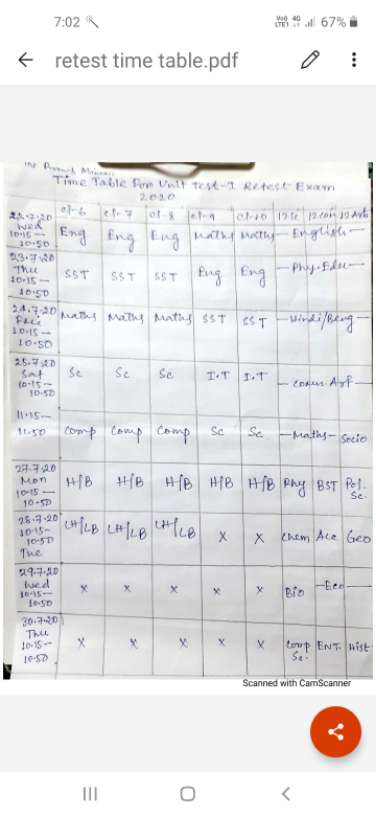 7:02
Vo) 4G
LTE1 67%
retest time table.pdf
Time Table For Unit Test-I Retest Exam
2020
cl-6 cl-7 cl-8 cl-9 cl-10 12Sc 12Com 12 Arts
22.7.20
Wed
10.15-
10.50
Eng Eng Eng Maths Maths - English -
23.7.20
Thu
10.15-
10.50
SST SST SST Eng Eng - Phy. Edu -
24.7.20
10.15-
10.50
Maths Maths Maths SST SST - Hindi/Beng -
25.7.20
Sat
10.15-
10.50
Sc Sc Sc I.T I.T
11.15-
11.50
Comp Comp Comp Sc Sc - Maths - Socio
27.7.20
Mon
10.15-
10.50
H/B H/B H/B H/B H/B Phy BST Pol.
Sc.
28.7.20
10.15-
10.50
Tue
LH/LB LH/LB LH/LB x x Chem Acc Geo
29.7.20
Wed
10.15-
10.50
x x x x x Bio - Eco -
30.7.20
Thu
10.15-
10.50
x x x x x Comp
Sc. ENT. Hist
Scanned with CamScanner